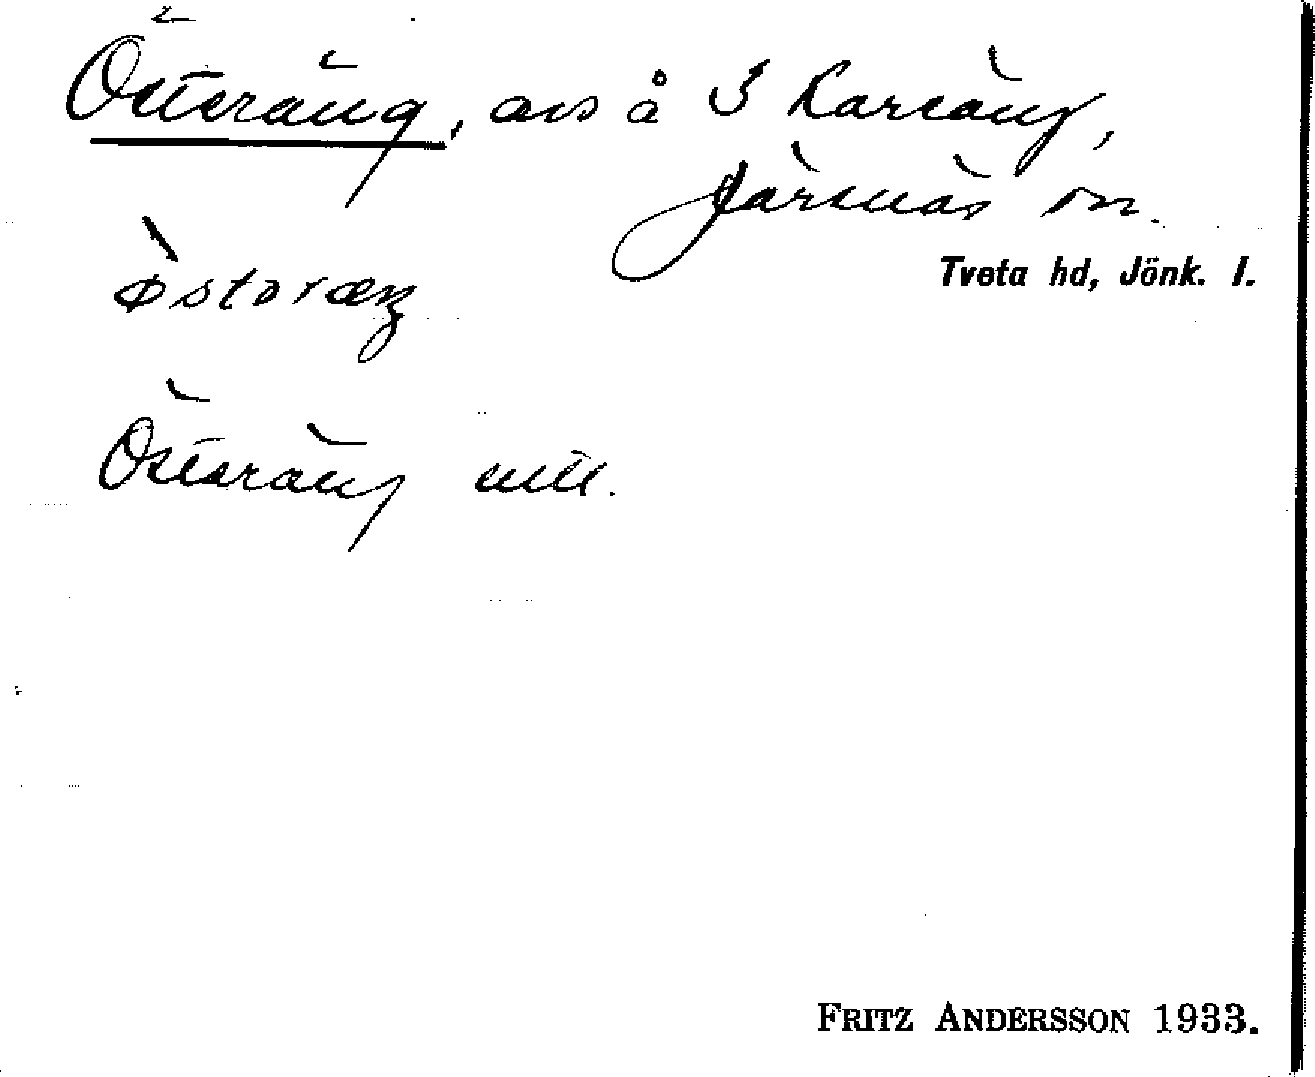 Österäng, avs å 3 Karsäng,
Järsnäs sn.
Tveta hd, Jönk. l.
östəræŋ
Österäng mtl.
FRITZ ANDERSSON 1933.